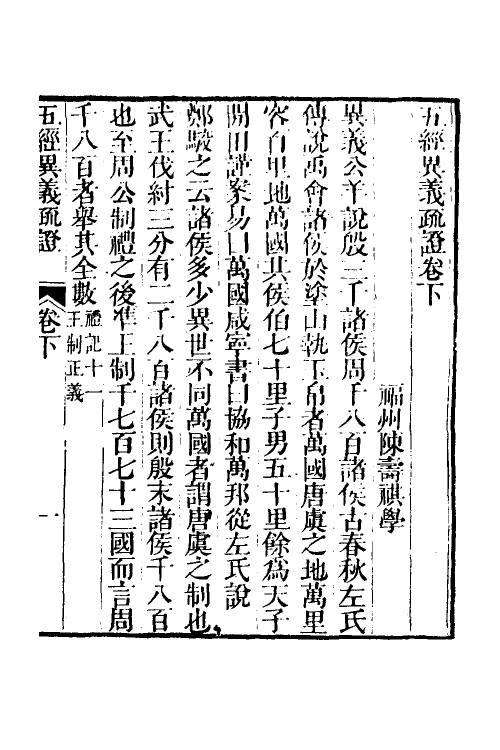 五經異義疏證卷下
福州陳壽祺學
異義公羊說殷三千諸侯周千八百諸侯古春秋左氏
傳說禹會諸侯於塗山執玉帛者萬國唐虞之地萬里
容百里地萬國其侯伯七十里子男五十里餘爲天子
閒田謹案易曰萬國咸寧書曰協和萬邦從左氏說
鄭駮之云諸侯多少異世不同萬國者謂唐虞之制也
武王伐紂三分有二千八百諸侯則殷末諸侯千八百
也至周公制禮之後準王制千七百七十三國而言周
千八百者舉其全數禮記十一王制正義
五經異義疏證 卷下 一